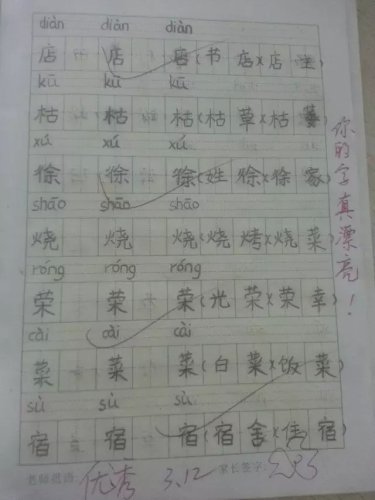 diàn diàn diàn
店 店 店(书店)(店主)
kū kū kū
枯 枯 枯(枯草)(枯萎)
xú xú xú
徐 徐 徐(姓徐)(徐家)
shāo shāo shāo
烧 烧 烧(烧烤)(烧菜)
róng róng róng
荣 荣 荣(光荣)(荣幸)
cài cài cài
菜 菜 菜(白菜)(饭菜)
sù sù sù
宿 宿 宿(宿舍)(住宿)
你的字真漂亮!
老师批语: 优秀 3.12 家长签字: